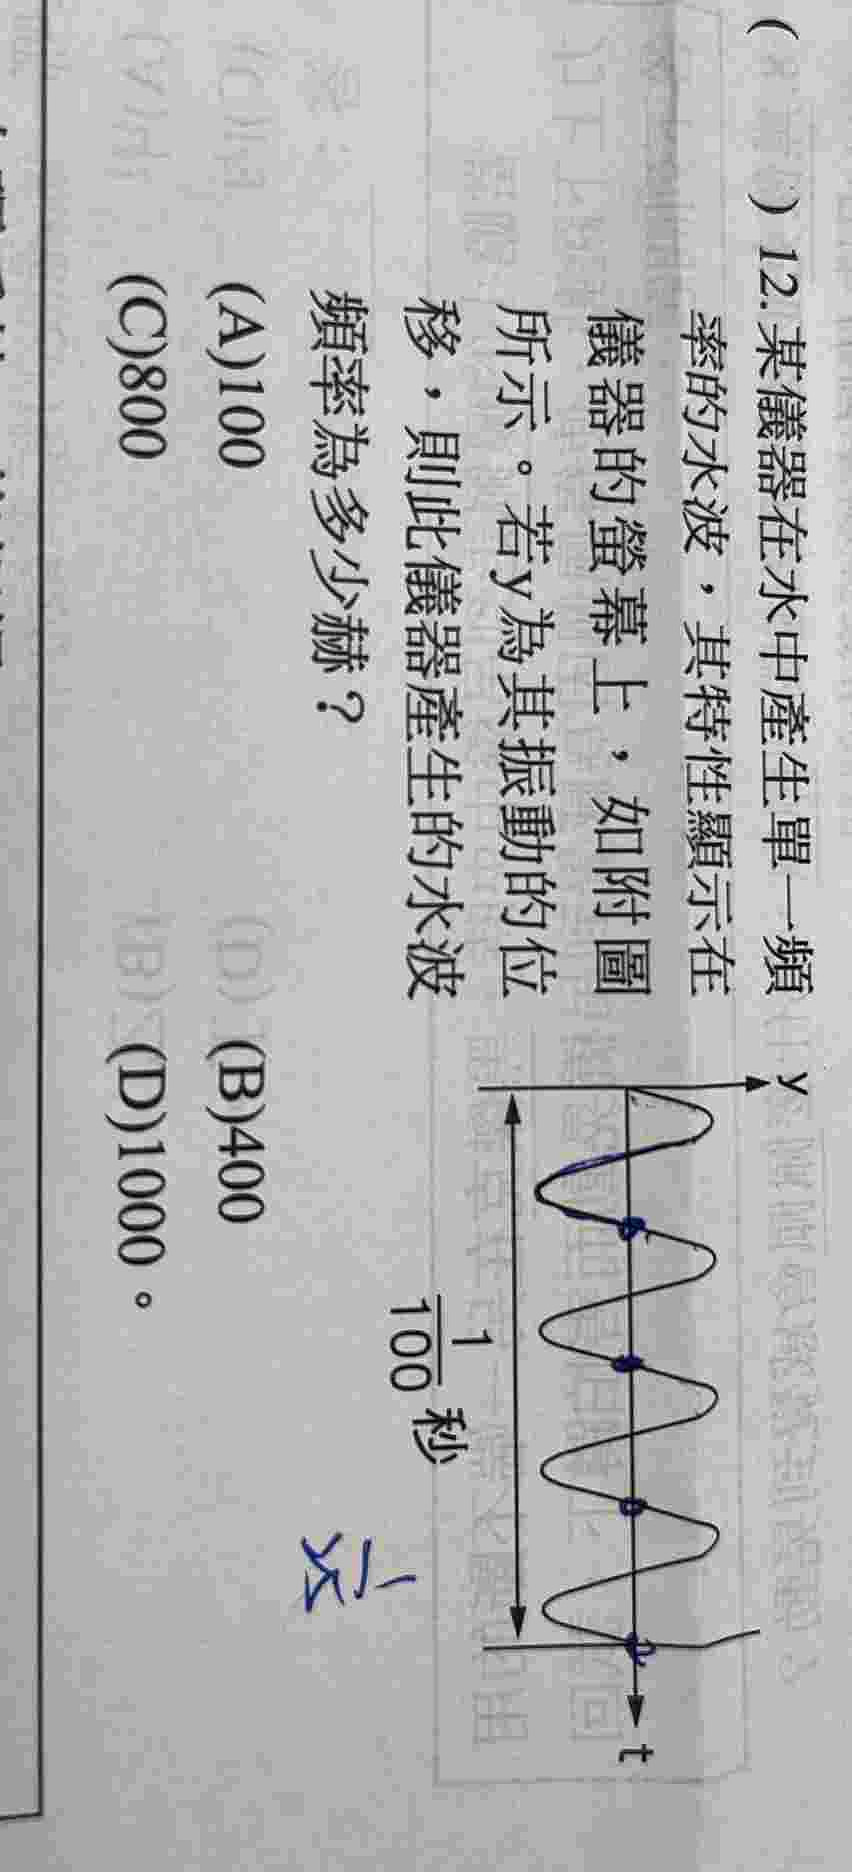 ( ) 12.某儀器在水中產生單一頻
率的水波，其特性顯示在
儀器的螢幕上，如附圖
所示。若y為其振動的位
移，則此儀器產生的水波
頻率為多少赫？
(A)100 (B)400
(C)800 (D)1000。
y
t
1
100
秒